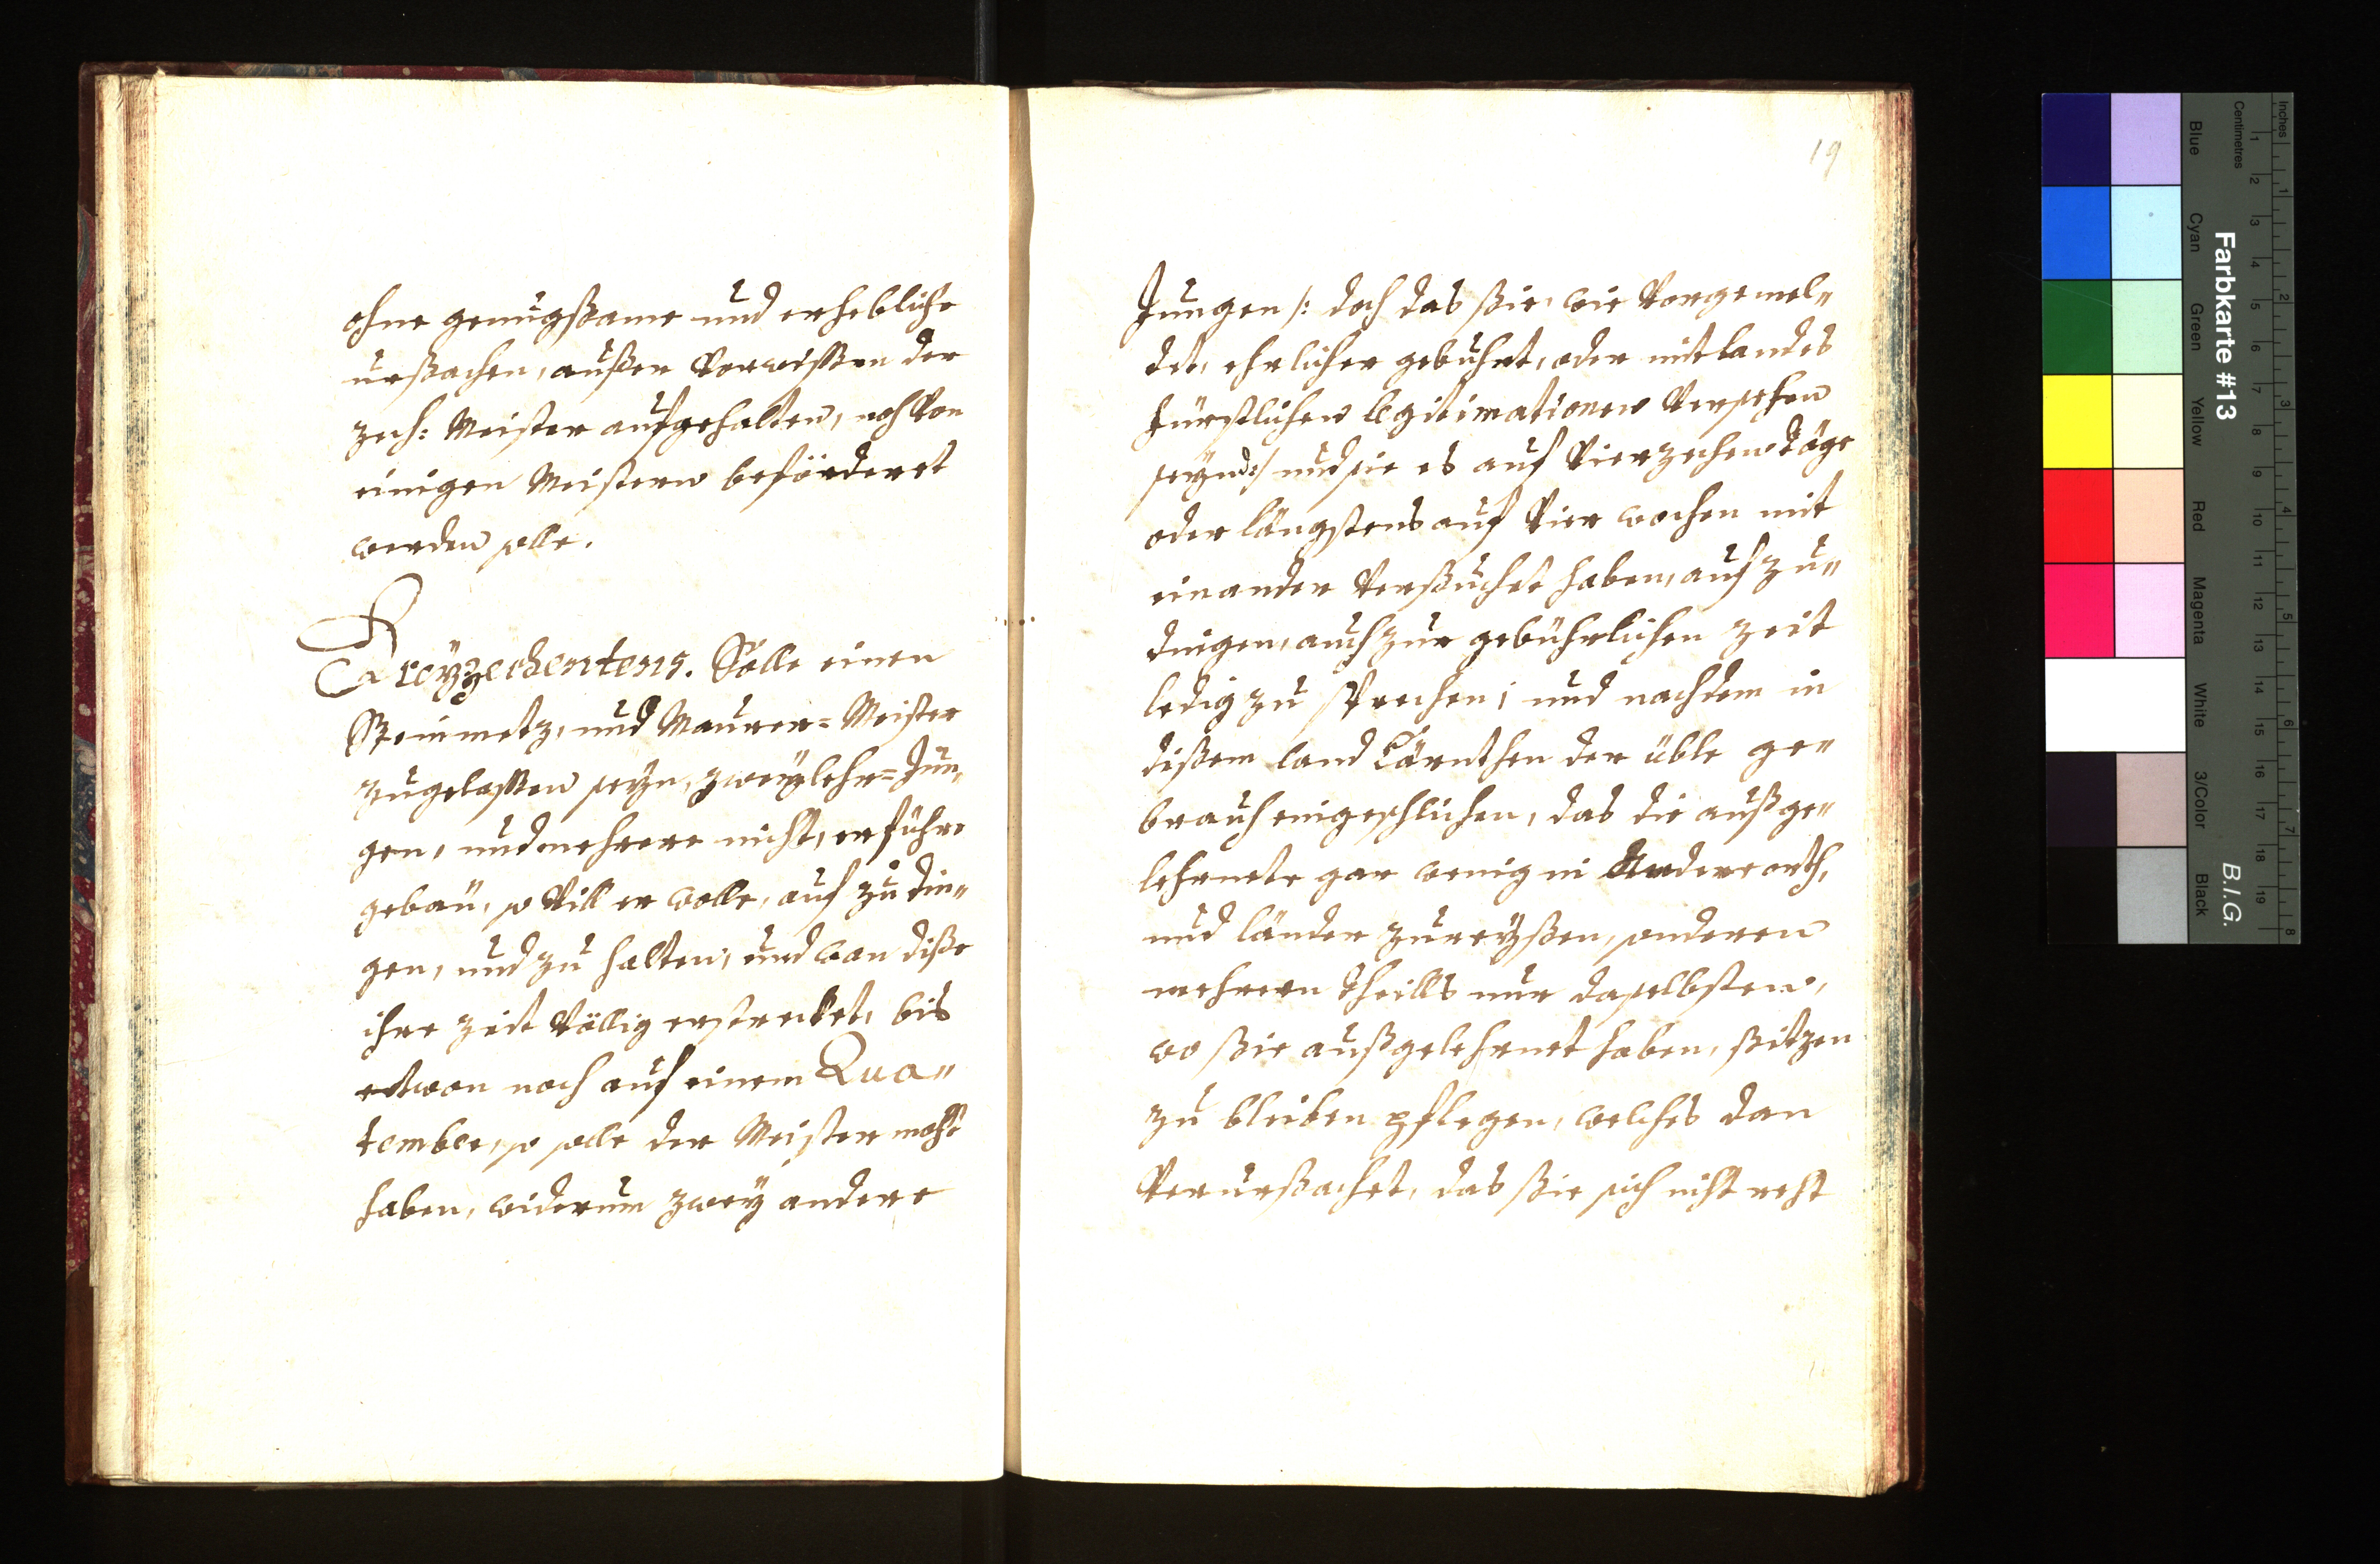 ohne genugßame und erhebliche
urßachen, außer Vorwißen der
zech: Meister aufgehalten, noch Von
einigen Meistern beförderet
werden solle.
Dreyzechentens. Solle einen
Steinmetz, und Maurer= Meister
zugelaßen seyn, zwey lehr= Jun„
gen, und mehrere nicht, er führe
gebäu, so Vill er wolle, auf zu din„
gen, und zu halten, und wan diße
ihre zeit Völlig erstrecket, bis
etwan noch auf einem Qua„
tember, so solle der Meister macht
haben, widerum zwey andere
19
Jungen /: doch das ßie, wie Vorgemel„
det, ehrlicher gebuhrt, oder mit landes
fürstlichen legitimationen Versehen
seynd:/ und sie es auf Vierzechen täge
oder längstens auf Vier wochen mit
einander Verßuchet haben, auf zu„
dingen, auch zur gebührlichen zeit
ledig zu sprechen; und nachdem in
dißem land Cärnthen der üble ge„
brauch eingeschlichen, das die außge„
lehrnete gar wenig in Andere orth,
und länder zu reyßen, sonderen
mehrern theills nur daselbsten,
wo ßie außgelehrnet haben, ßitzen
zu bleiben pflegen, welches dan
Verurßachet, das ßie sich nicht recht
Farbkarte #13
B.I.G.
Inches
Centimetres
Blue
Cyan
Green
Yellow
Red
Magenta
White
3/Color
Black